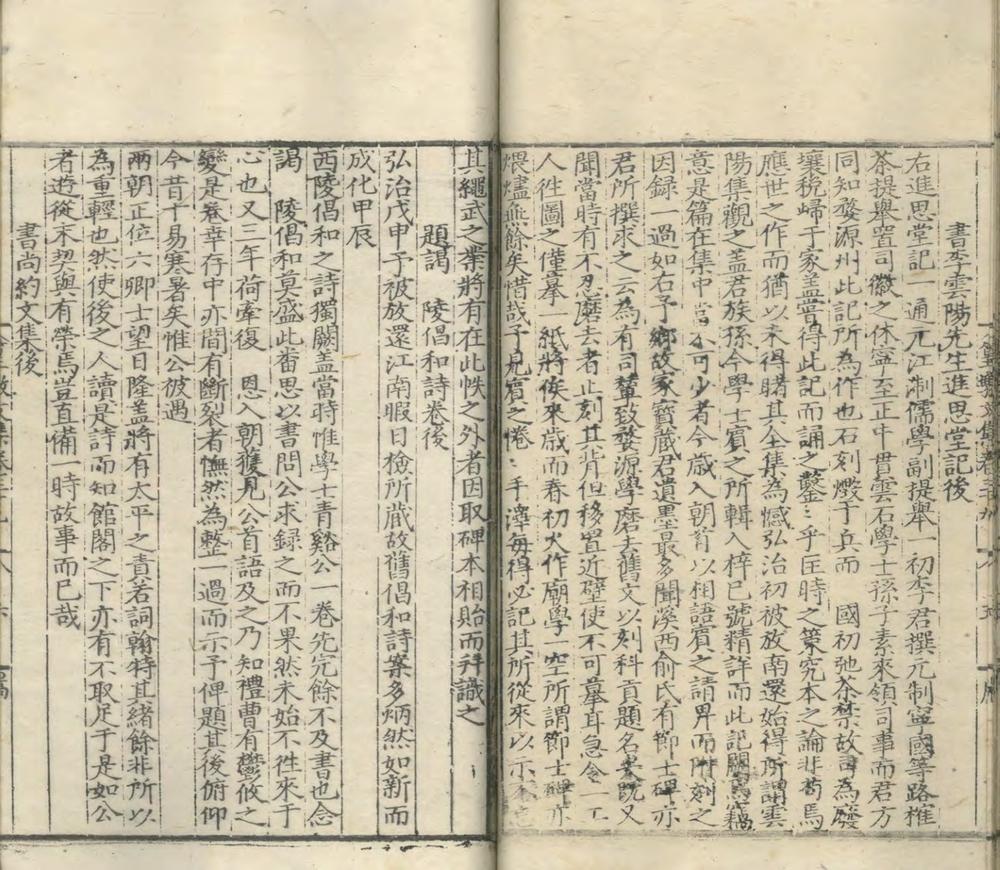 書李雲陽先生進思堂記後
右進思堂記一通元江制儒學副提舉一初李君撰元制寧國等路榷
茶提舉置司徽之休寧至正中貫雲石學士孫子素來領司事而君方
同知婺源州此記所為作也石刻燬于兵而　國初弛茶禁故司為廢
壤稅歸于家盖嘗得此記而誦之鑿〻乎匡時之策究本之論非苟焉
應世之作而猶以未得睹其全集為憾弘治初被放南還始得所謂雲
陽集觀之盖君族孫今學士賓之所輯入梓已號精詳而此記闕焉竊
意是篇在集中當不可少者今歲入朝首以相語賓之請畀而附刻之
因録一過如右予鄉故家寶藏君遺墨最多聞溪西俞氏有節士碑亦
君所撰求之云為有司輦致婺源學磨去舊文以刻科貢題名矣既又
聞當時有不忍磨去者止刻其背但移置近壁使不可摹耳急令一工
人徃圖之僅摹一紙將俟來歲而春初火作廟學一空所謂節士碑亦
煨燼無餘矣惜哉予見賓之惓〻手澤每得必記其所從來以示
其繩武之業將有在此帙之外者因取碑本相貽而并識之
題謁　陵倡和詩卷後
弘治戊申予被放還江南暇日檢所蔵故舊倡和詩案多炳然如新而
成化甲辰
西陵倡和之詩獨闕盖當時惟學士青谿公一卷先完餘不及書也念
謁　陵倡和莫盛此畨思以書問公求録之而不果然未始不徃來于
心也又三年荷牽復　恩入朝獲見公首語及之乃知禮曹有鬱攸之
變是卷幸存中亦間有斷裂者憮然為整一過而示予俾題其後俯仰
今昔十易寒暑矣惟公彼遇
兩朝正位六卿士望日隆盖將有太平之責若詞翰特其緒餘非所以
為重輕也然使後之人讀是詩而知館閣之下亦有不取足于是如公
者逰從末契與有榮焉豈直備一時故事而已哉
書尚約文集後